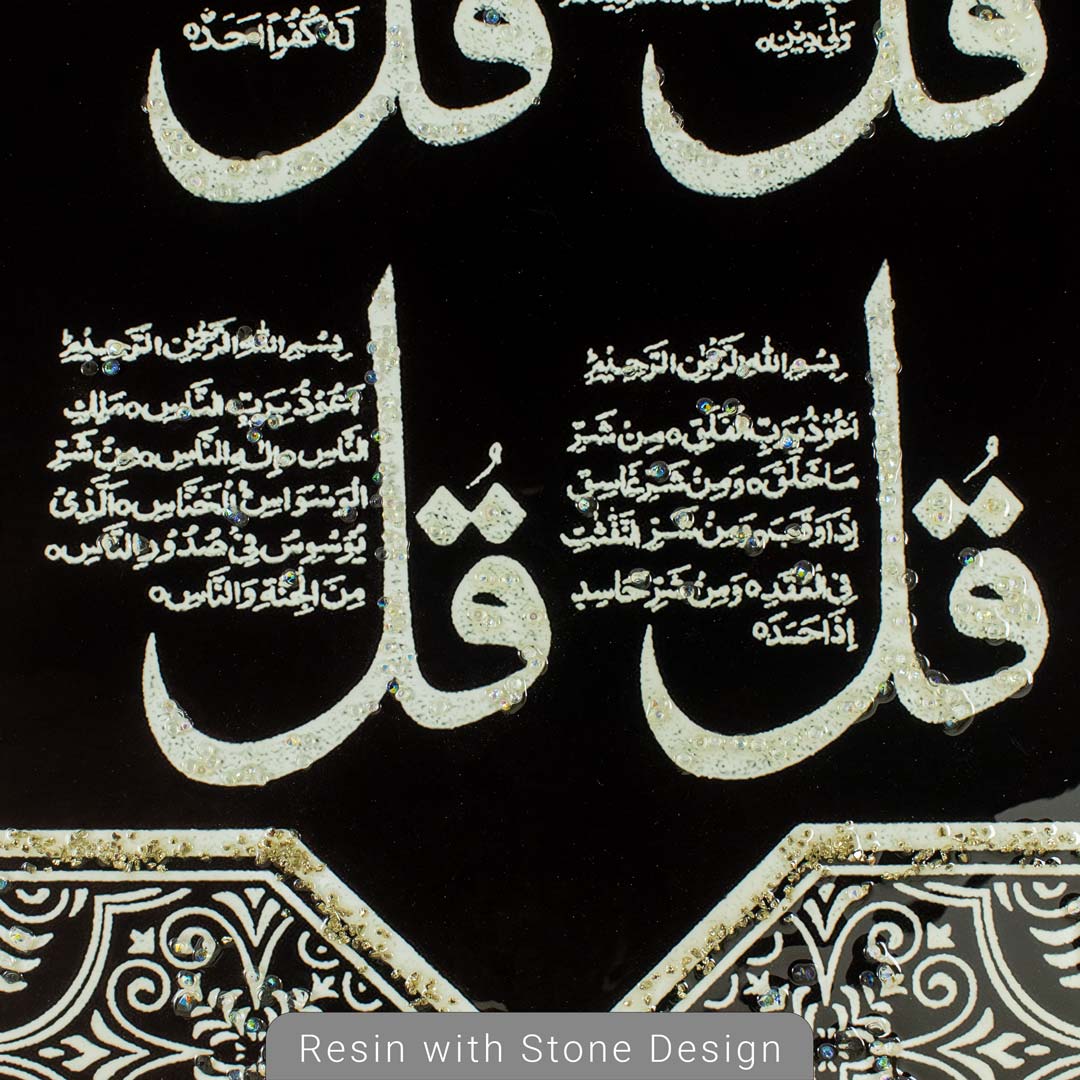 وَلِيَ دِيْنِ
لَّهٗ كُفُوًا اَحَدٌ
قُلْ
قُلْ
بِسْمِ اللهِ الرَّحْمٰنِ الرَّحِيْمِ
قُلْ
اَعُوْذُ بِرَبِّ الْفَلَقِ ه مِنْ شَرِّ
مَا خَلَقَ ه وَمِنْ شَرِّ غَاسِقٍ
اِذَا وَقَبَ ه وَمِنْ شَرِّ النَّفّٰثٰتِ
فِى الْعُقَدِ ه وَمِنْ شَرِّ حَاسِدٍ
اِذَا حَسَدَ ه
بِسْمِ اللهِ الرَّحْمٰنِ الرَّحِيْمِ
قُلْ
اَعُوْذُ بِرَبِّ النَّاسِ ه مَلِكِ
النَّاسِ ه اِلٰهِ النَّاسِ ه مِنْ شَرِّ
الْوَسْوَاسِ الْخَنَّاسِ ه الَّذِىْ
يُوَسْوِسُ فِىْ صُدُوْرِ النَّاسِ ه
مِنَ الْجِنَّةِ وَالنَّاسِ ه
Resin with Stone Design